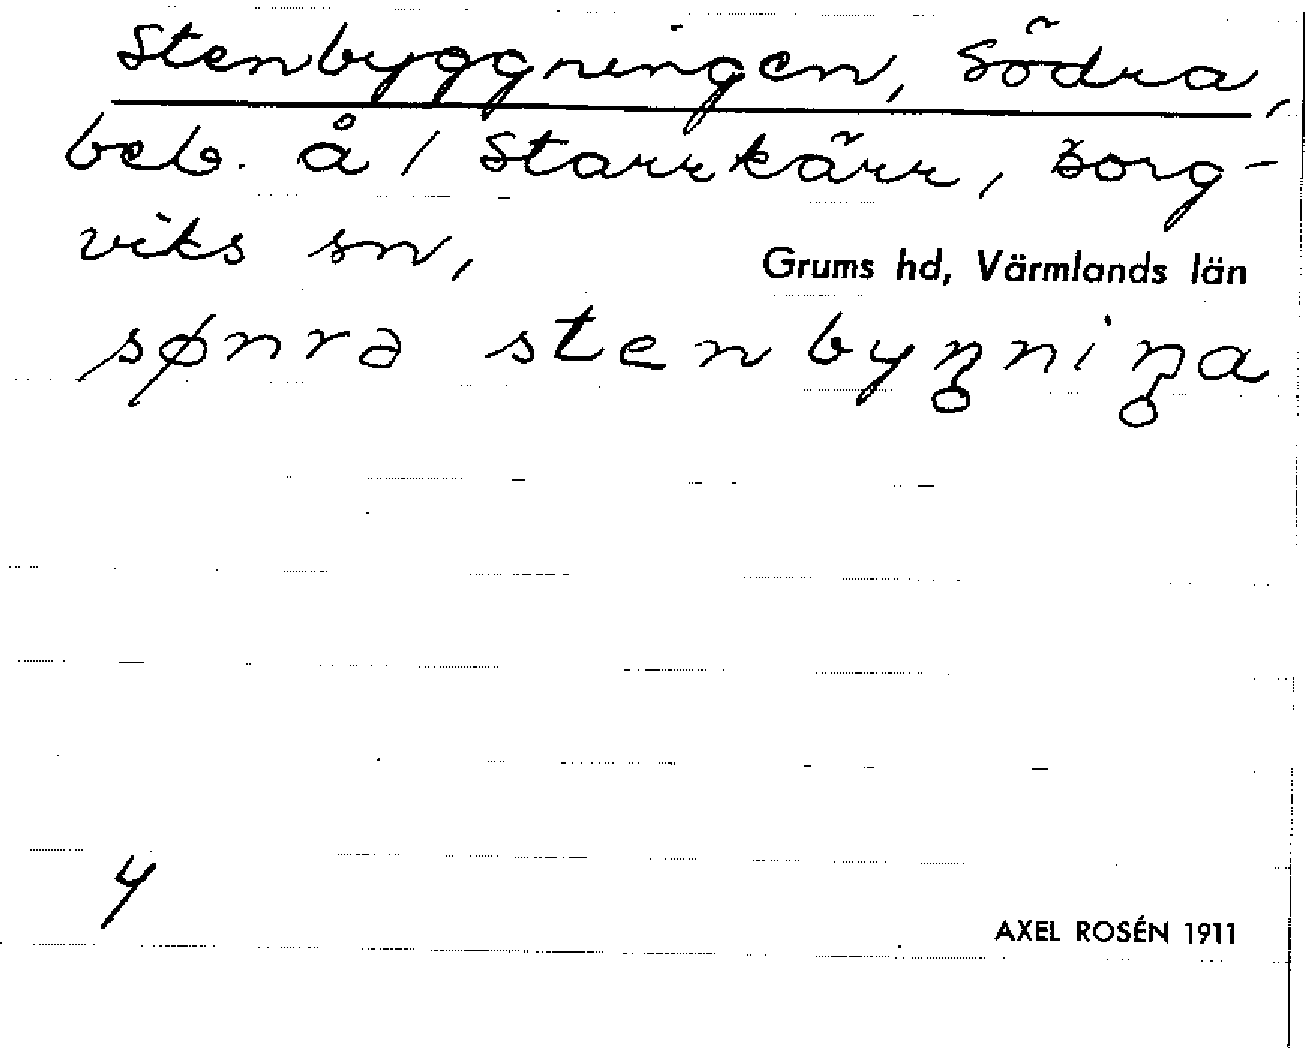 Stenbyggningen, Södra,
beb. å 1 Starrkärr, Borg-
viks sn,
Grums hd, Värmlands län
sønrə stenbyŋniŋa
4
AXEL ROSÉN 1911